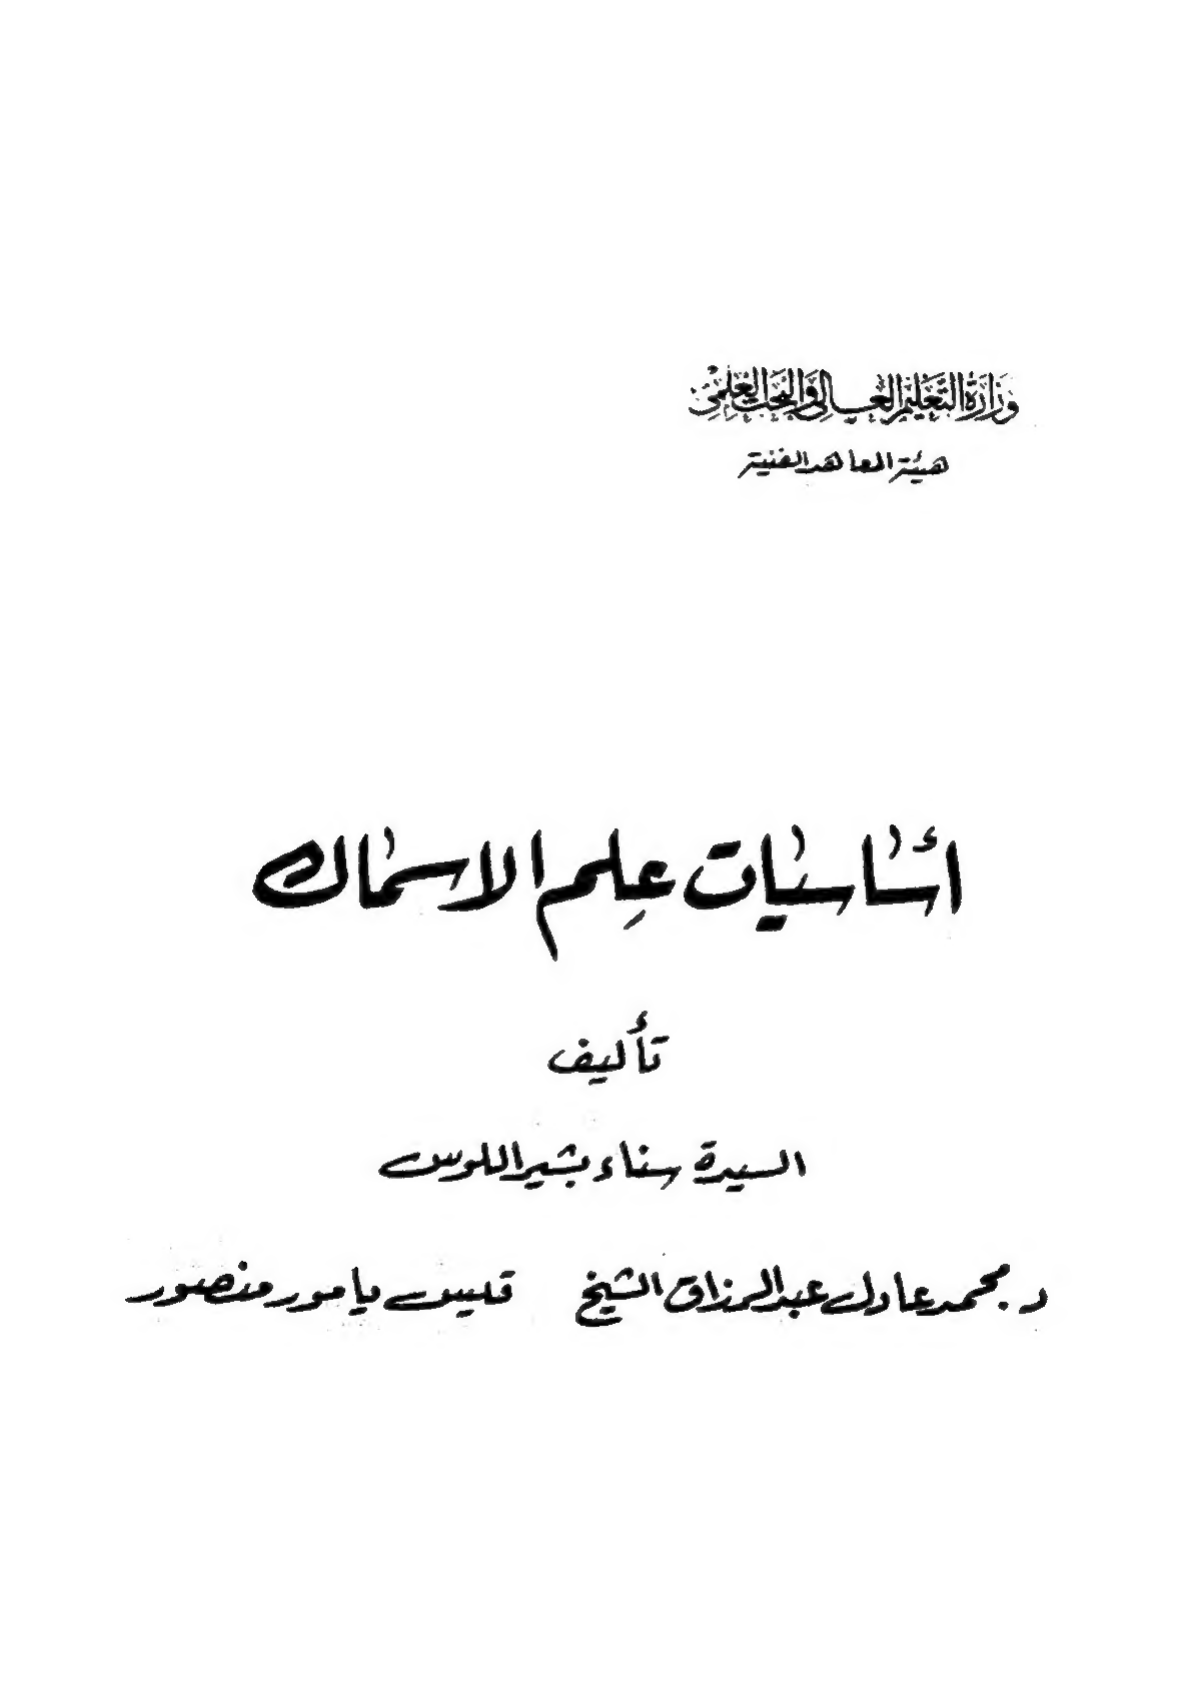 وزارة التعليم العالي والبحث العلمي
هيئة المعاهد الفنية
أساسيات علم الاسماك
تأليف
السيدة سناء بشير اللوس
د. محمد عادل عبد الرزاق الشيخ قليس يامور منصور